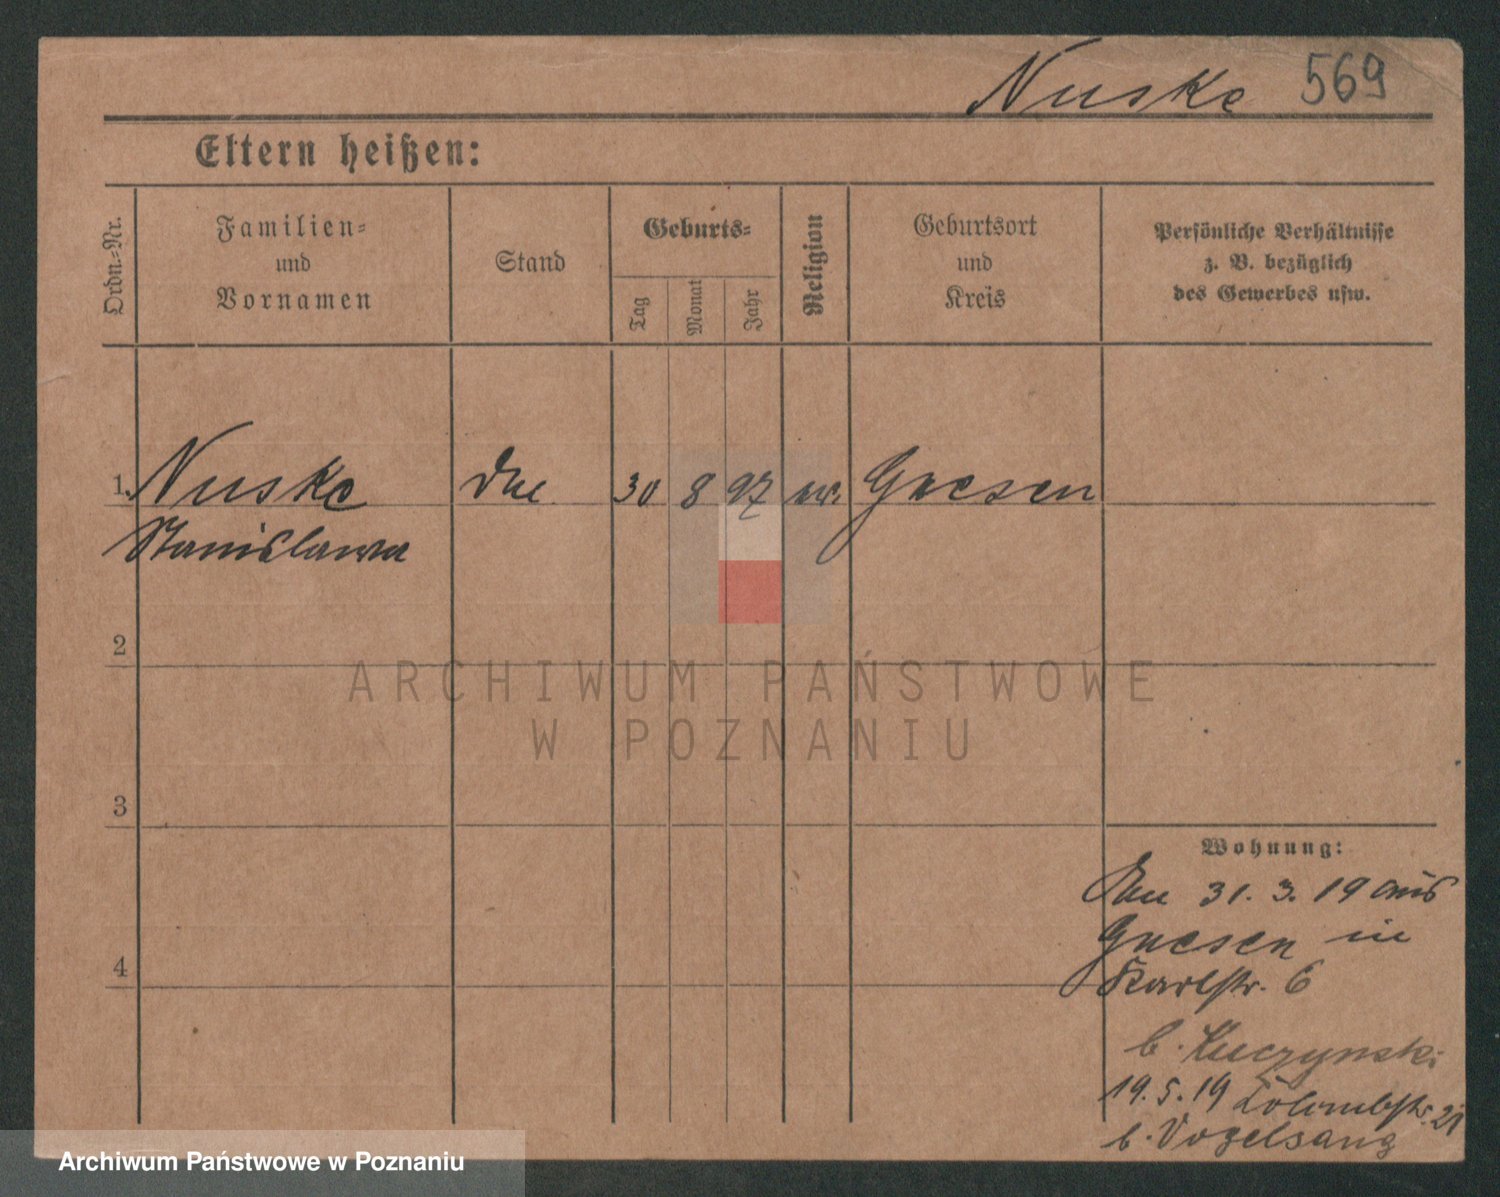 Nuske 569
Eltern heißen:
Ordn.-Nr.
Familien-
und
Vornamen
Stand
Geburts-
Tag
Monat
Jahr
Religion
Geburtsort
und
Kreis
Persönliche Verhältnisse
z. B. bezüglich
des Gewerbes usw.
1. Nuske 30 8 97 Gnesen
Stanislawa
2
3
4
Wohnung:
31. 3. 19 aus
Gnesen in
Karlstr. 6
b. Kuczynski
19. 5. 19 21
b. Vogelsang
ARCHIWUM PAŃSTWOWE
W POZNANIU
Archiwum Państwowe w Poznaniu